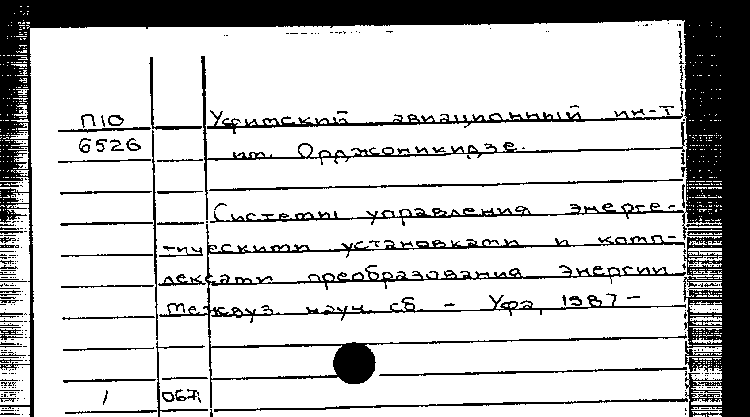 П10 Уфимский авиационный ин-т
6526 им. Орджоникидзе.
Системы управления энерге-
тическими установками и комп-
лексами преобразования энергии
Межвуз. науч. сб. - Уфа, 1987-
1 067